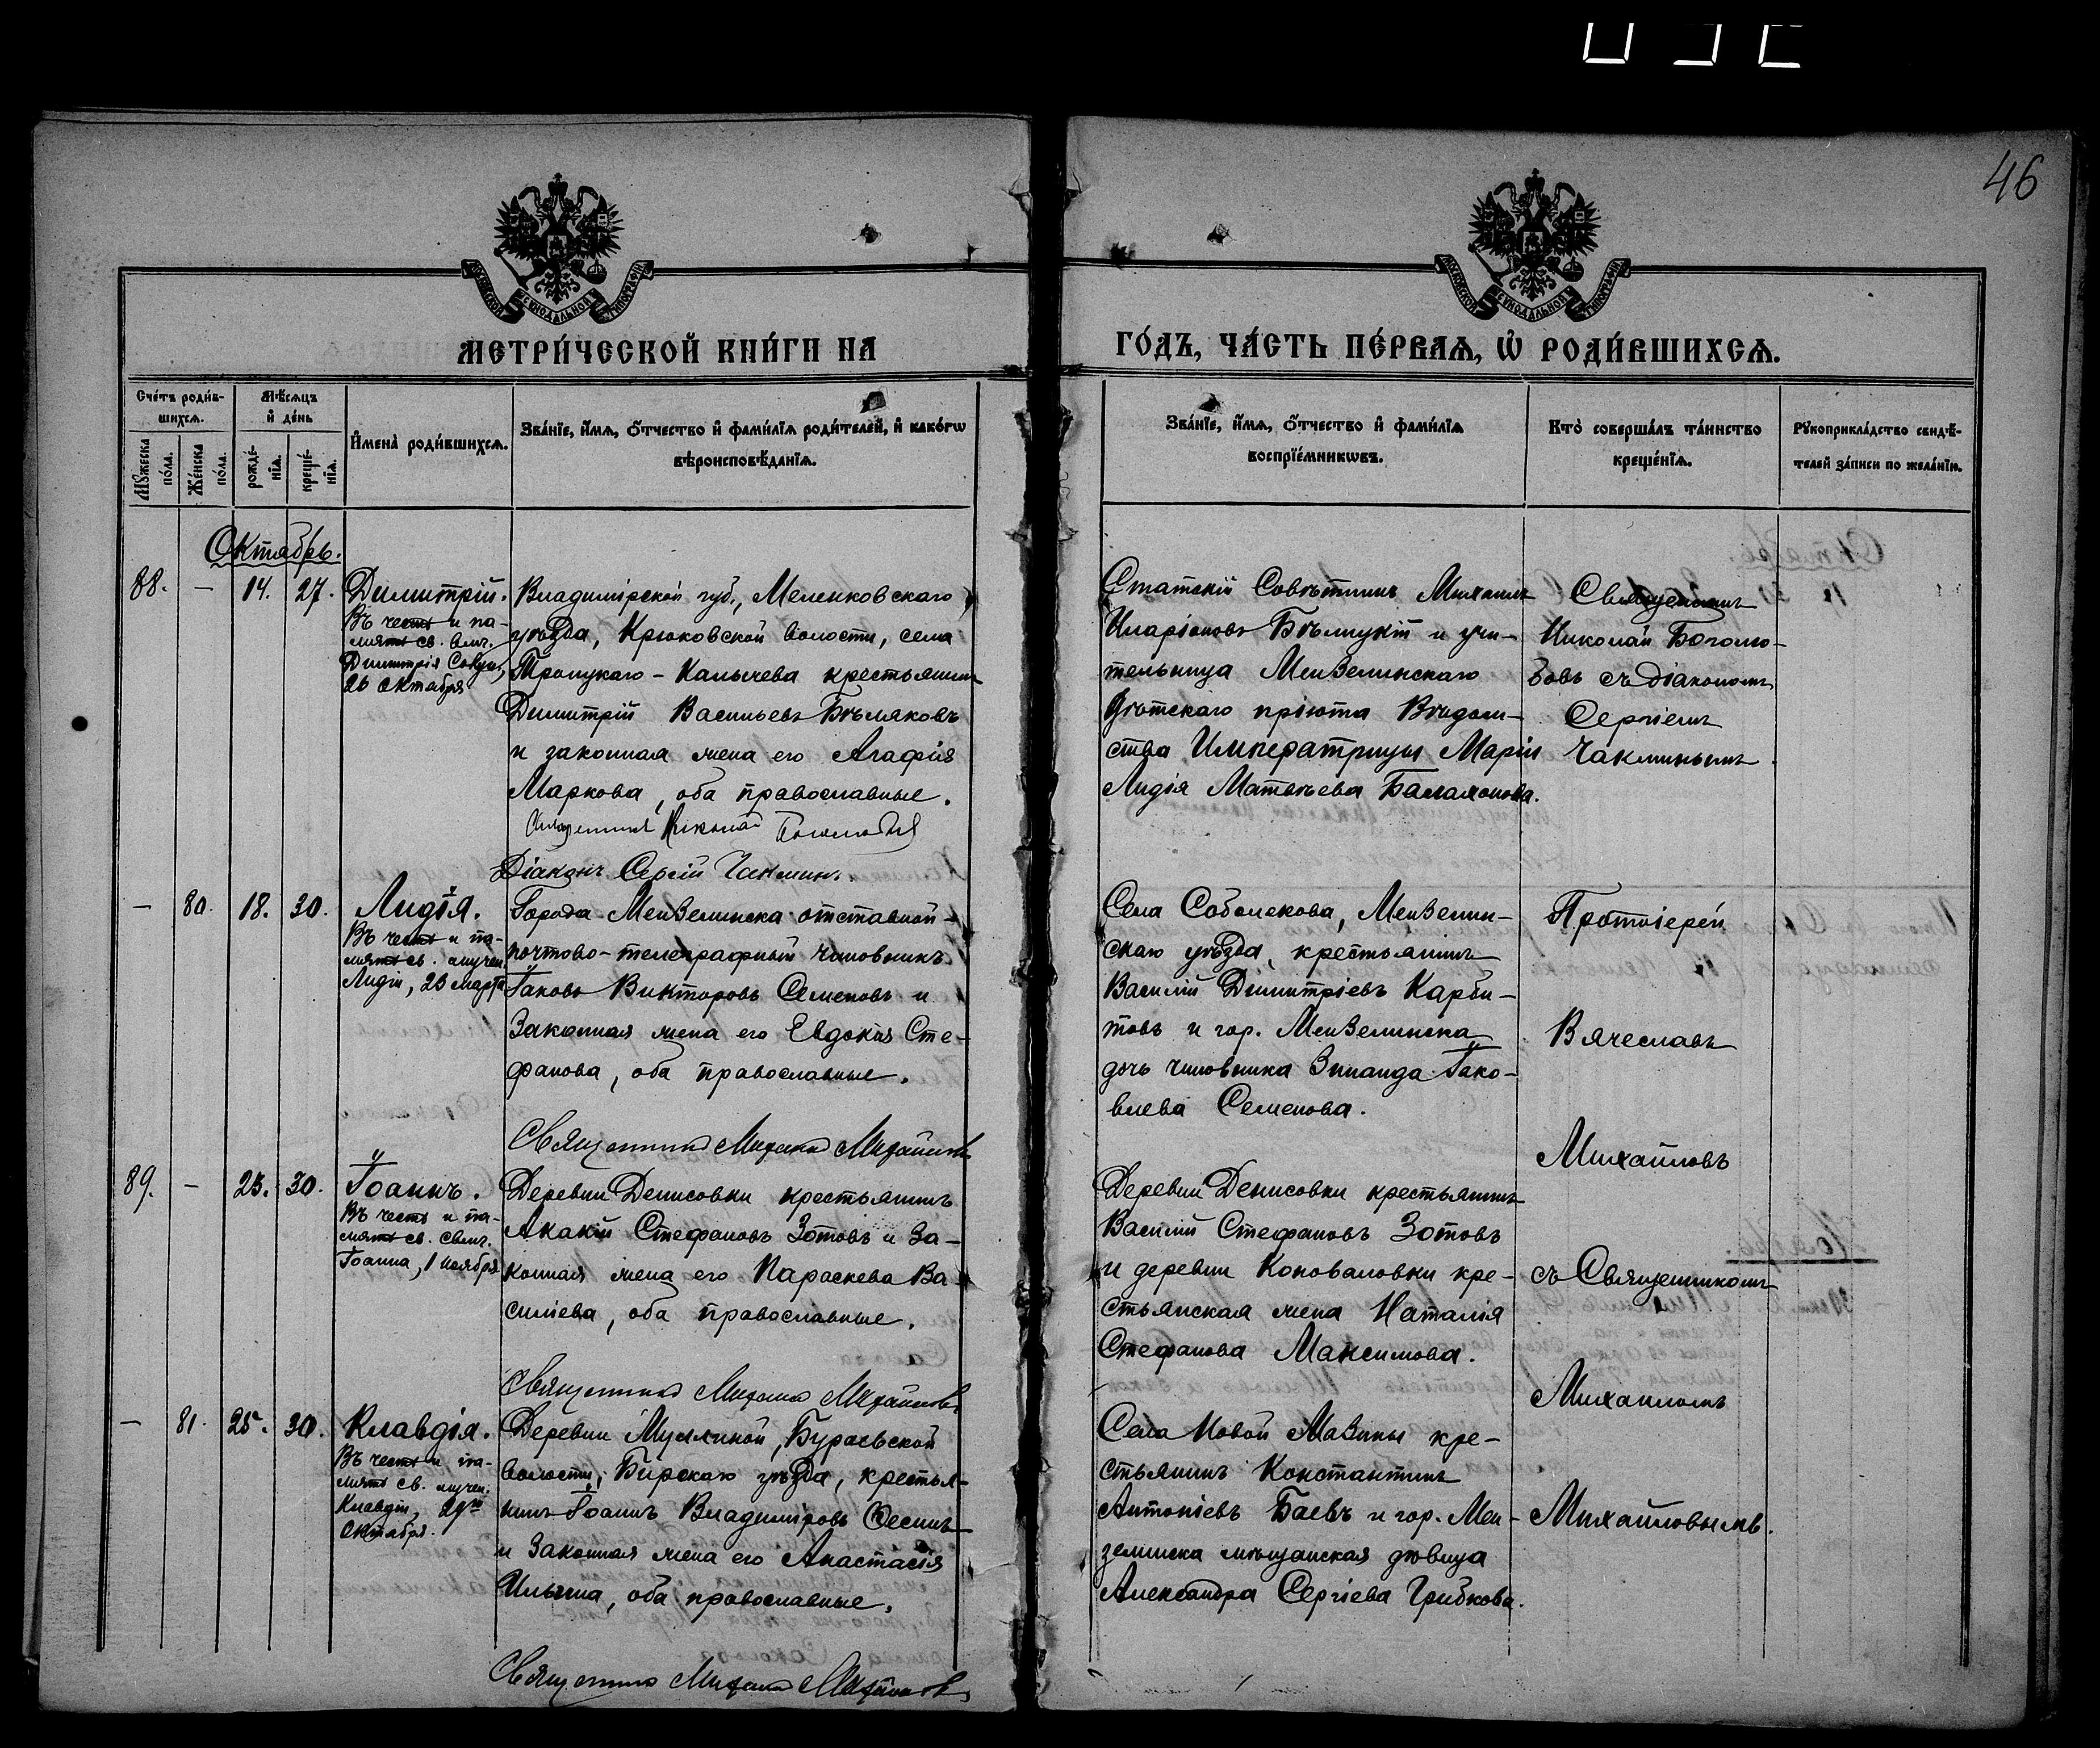 46
МОСКОВСКОЙ СѴНОДАЛЬНОЙ ТИПОГРАФІИ
МОСКОВСКОЙ СѴНОДАЛЬНОЙ ТИПОГРАФІИ
МЕТРИ́ЧЕСКОЙ КНИ́ГИ НА
ГО́ДЪ, ЧА́СТЬ ПЕ́РВАѦ, Ѡ҆ РОДИ́ВШИХСѦ.
Сче́тъ роди́в-
шихсѧ.
Мꙋжеска по́ла.
Же́нска по́ла.
Мѣ́сѧцъ
и҆ де́нь
рожде́-
нїѧ.
креще́-
нїѧ.
И҆мена̀ роди́вшихсѧ.
Зва́нїе, и҆́мѧ, ѻ҆́тчество и҆ фами́лїѧ роди́телей, и҆ како́гѡ
вѣроисповѣ́данїѧ.
Зва́нїе, и҆́мѧ, ѻ҆́тчество и҆ фами́лїѧ
воспрїе́мникѡвъ.
Кто̀ соверша́лъ та́инство
креще́нїѧ.
Рꙋкоприкла́дство свидѣ́-
телей за́писи по жела́нїю.
Октябрь.
88. — 14. 27. Димитрій.
Въ честь и па-
мять св. влмч.
Димитрія Солун,
26 октября
Владимірской губ., Меленковскаго
уѣзда, Крюковской волости, села
Троицкаго-Калычева крестьянинъ
Димитрій Васильевъ Бѣляковъ
и законная жена его Агафія
Маркова, оба православные.
Священникъ Николай Боголюбовъ
Діаконъ Сергій Чакминъ.
Статскій Совѣтникъ Михаилъ
Иларіоновъ Бѣлицкій и учи-
тельница Мензелинскаго
Дѣтскаго пріюта Вѣдом-
ства Императрицы Маріи
Лидія Матвѣева Баламонова.
Священникъ
Николай Боголю-
бовъ съ діакономъ
Сергіемъ
Чакминымъ.
— 80. 18. 30. Лидія.
Въ честь и па-
мять св. мучен.
Лидіи, 23 марта
Города Мензелинска отставной
почтово-телеграфный чиновникъ
Іаковъ Викторовъ Семеновъ и
законная жена его Евдокія Сте-
фанова, оба православные.
Священникъ Михаилъ Михайловъ
Села Соболекова, Мензелин-
скаго уѣзда, крестьянинъ
Василій Димитріевъ Карби-
товъ и гор. Мензелинска
дочь чиновника Зинаида Іако-
влева Семенова.
Протоіерей
Вячеславъ
Михайловъ
89. — 25. 30. Іоаннъ.
Въ честь и па-
мять св. свмч.
Іоанна, 1 ноября
Деревни Денисовки крестьянинъ
Акакій Стефановъ Зотовъ и за-
конная жена его Параскева Ва-
силіева, оба православные.
Священникъ Михаилъ Михайловъ
Деревни Денисовки крестьянинъ
Василій Стефановъ Зотовъ
и деревни Коноваловки кре-
стьянская жена Наталія
Стефанова Максимова.
съ Священникомъ
Михаиломъ
— 81. 25. 30. Клавдія.
Въ честь и па-
мять св. мучен.
Клавдіи, 24го
октября.
Деревни Муллиной, Бураевской
волости, Бирскаго уѣзда, крестья-
нинъ Іоаннъ Владиміровъ Овсинъ
и законная жена его Анастасія
Ильина, оба православные.
Священникъ Михаилъ Михайловъ
Села Новой Мазины кре-
стьянинъ Константинъ
Антоніевъ Баевъ и гор. Мен-
зелинска мѣщанская дѣвица
Александра Сергіева Грибкова.
Михайловымъ.